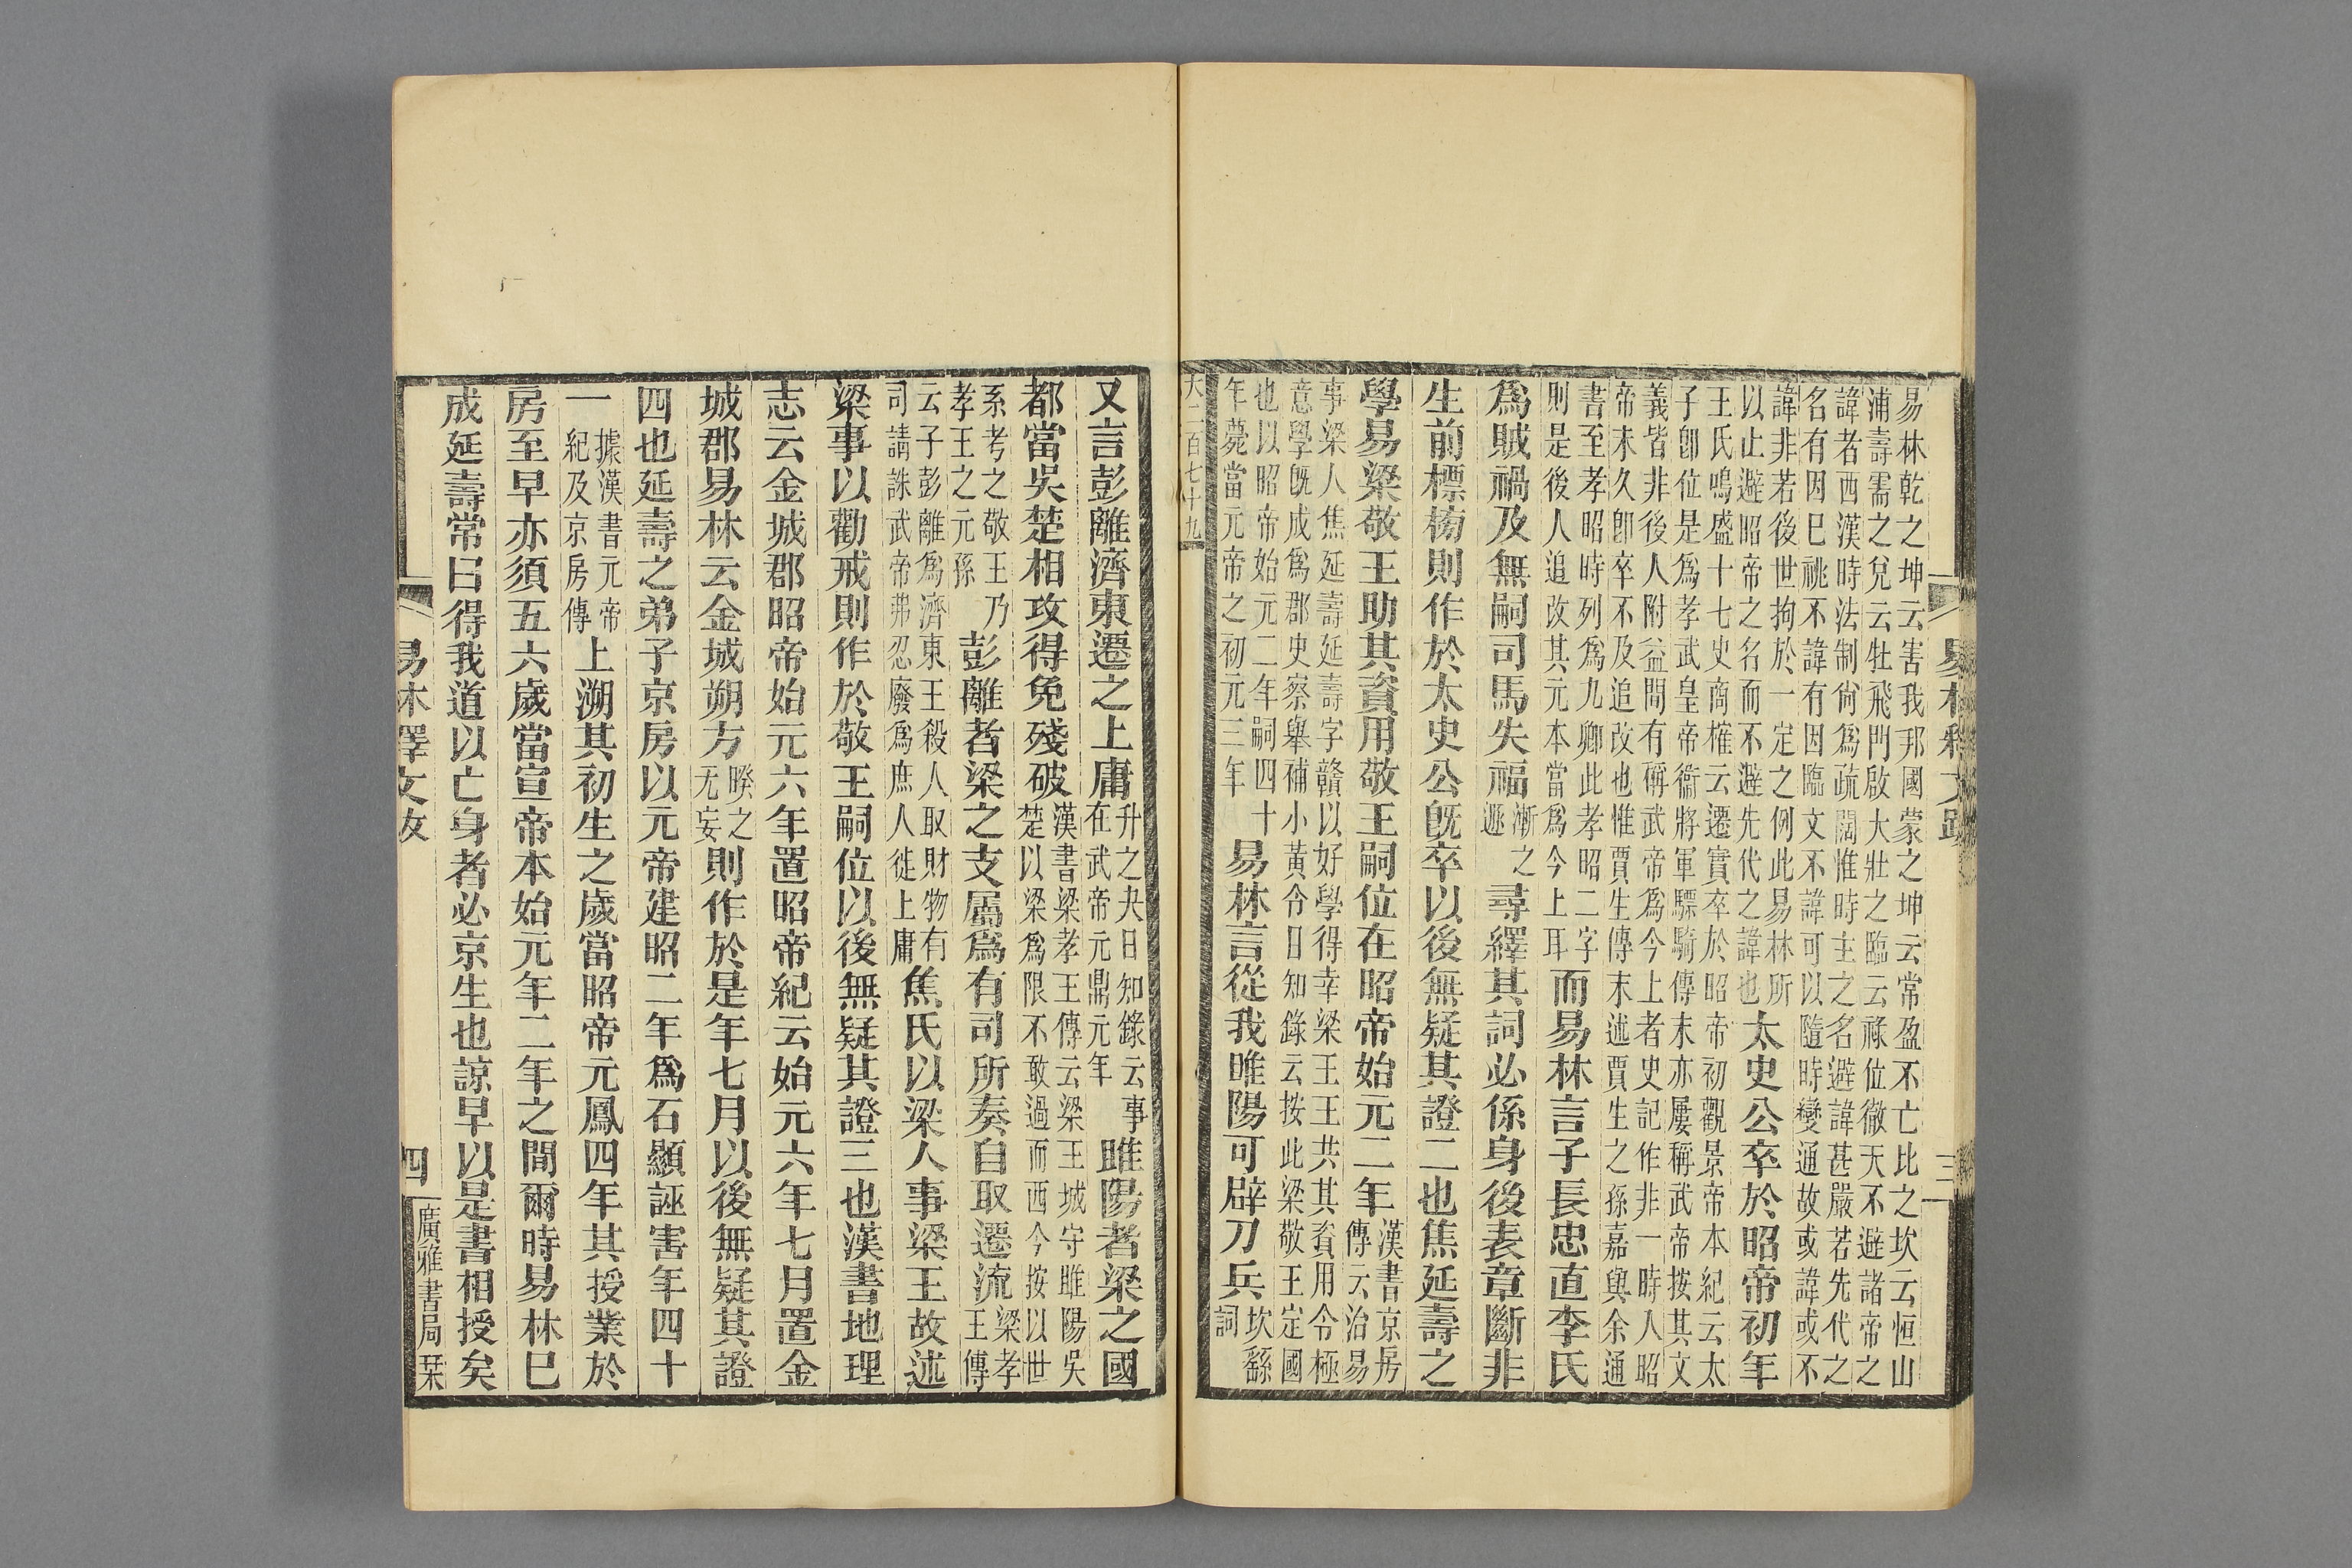 易林釋文跋
三
易林乾之坤云害我邦國蒙之坤云常盈不亡比之坎云恒山
浦壽需之兌云牡飛門啟大壯之臨云祿位徹天不避諸帝之
諱者西漢時法制尙爲疏闊惟時主之名避諱甚嚴若先代之
名有因已祧不諱有因臨文不諱可以隨時變通故或諱或不
諱非若後世拘於一定之例此易林所以止避昭帝之名而不避先代之諱也太史公卒於昭帝初年
王氏鳴盛十七史商榷云遷實卒於昭帝初觀景帝本紀云太
子卽位是爲孝武皇帝衞將軍驃騎傳末亦屢稱武帝按其文
義皆非後人附益間有稱武帝爲今上者史記作非一時人昭
帝未久卽卒不及追改也惟賈生傳末述賈生之孫嘉與余通
書至孝昭時列爲九卿此孝昭二字則是後人追改其元本當爲今上耳而易林言子長忠直李氏
爲賊禍及無嗣司馬失福漸之遯尋繹其詞必係身後表章斷非
生前標榜則作於太史公旣卒以後無疑其證二也焦延壽之
學易梁敬王助其資用敬王嗣位在昭帝始元二年漢書京房傳云治易
事梁人焦延壽延壽字贛以好學得幸梁王王共其資用令極
意學旣成爲郡史察舉補小黃令日知錄云按此梁敬王定國
也以昭帝始元二年嗣四十年薨當元帝之初元三年易林言從我睢陽可辟刀兵坎繇詞
大二百七十九
又言彭離濟東遷之上庸升之夬日知錄云事在武帝元鼎元年睢陽者梁之國
都當吳楚相攻得免殘破漢書梁孝王傳云梁王城守睢陽吳楚以梁爲限不敢過而西今按以世
系考之敬王乃孝王之元孫彭離者梁之支屬爲有司所奏自取遷流梁孝王傳
云子彭離爲濟東王殺人取財物有司請誅武帝弗忍廢爲庶人徙上庸焦氏以梁人事梁王故述
梁事以勸戒則作於敬王嗣位以後無疑其證三也漢書地理
志云金城郡昭帝始元六年置昭帝紀云始元六年七月置金
城郡易林云金城朔方暌之无妄則作於是年七月以後無疑其證
四也延壽之弟子京房以元帝建昭二年爲石顯誣害年四十
一據漢書元帝紀及京房傳上溯其初生之歲當昭帝元鳳四年其授業於
房至早亦須五六歲當宣帝本始元年二年之間爾時易林已
成延壽常曰得我道以亡身者必京生也諒早以是書相授矣
易林釋文跋
四
廣雅書局栞